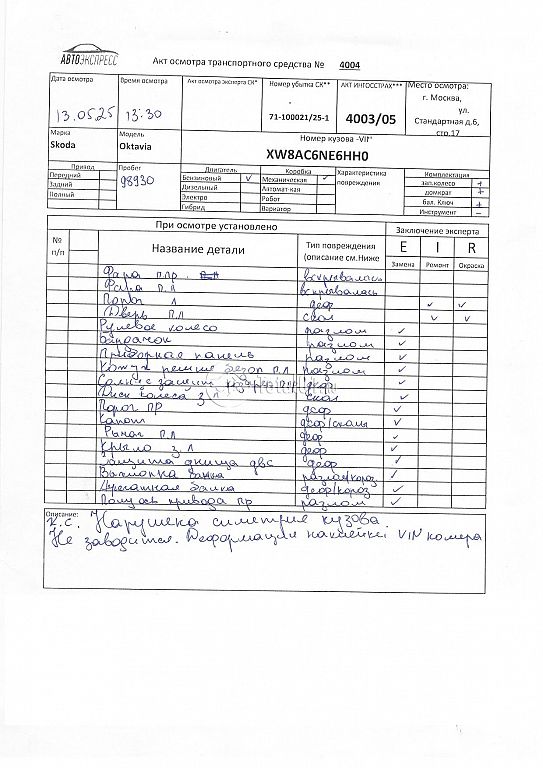 АВТОЭКСПРЕСС
Акт осмотра транспортного средства № 4004
Дата осмотра
13.05.25
Время осмотра
13:30
Акт осмотра эксперта СК*
Номер убытка СК**
71-100021/25-1
АКТ ИНГОССТРАХ***
4003/05
Место осмотра:
г. Москва,
ул.
Стандартная д.6,
стр.17
Марка
Skoda
Модель
Oktavia
Номер кузова -VIN
XW8AC6NE6HH0
Привод
Передний
Задний
Полный
Пробег
98930
Двигатель
Бензиновый V
Дизельный
Электро
Гибрид
Коробка
Механическая ✓
Автомат-кая
Робот
Вариатор
Характеристика
повреждения
Комплектация
зап.колесо +
домкрат +
бал. Ключ +
Инструмент –
При осмотре установлено
Заключение эксперта
№ п/п
Название детали
Тип повреждения
(описание см.Ниже
E I R
Замена Ремонт Окраска
Фара п.пр. вскрывалась
Фара п.л вскрывалась
Порог л деф ✓ ✓
Дверь п.л скол ✓ ✓
Рулевое колесо разлом ✓
Бардачок разлом ✓
Приборная панель разлом ✓
Кожух ремня безоп п.л разлом ✓
Солнцезащит п.пр деф ✓
Диск колеса з.л скол ✓
Порог ПР деф ✓
Капот деф/сколы ✓
Рычаг п.л деф ✓
Крыло з.л деф ✓
Защита днища двс деф ✓
Выхлопка банка разлом/короз ✓
деф/короз ✓
привода пр разлом ✓
Описание:
К.С. Нарушена симетрия кузова.
Не заводится. Деформация наклейки VIN номера